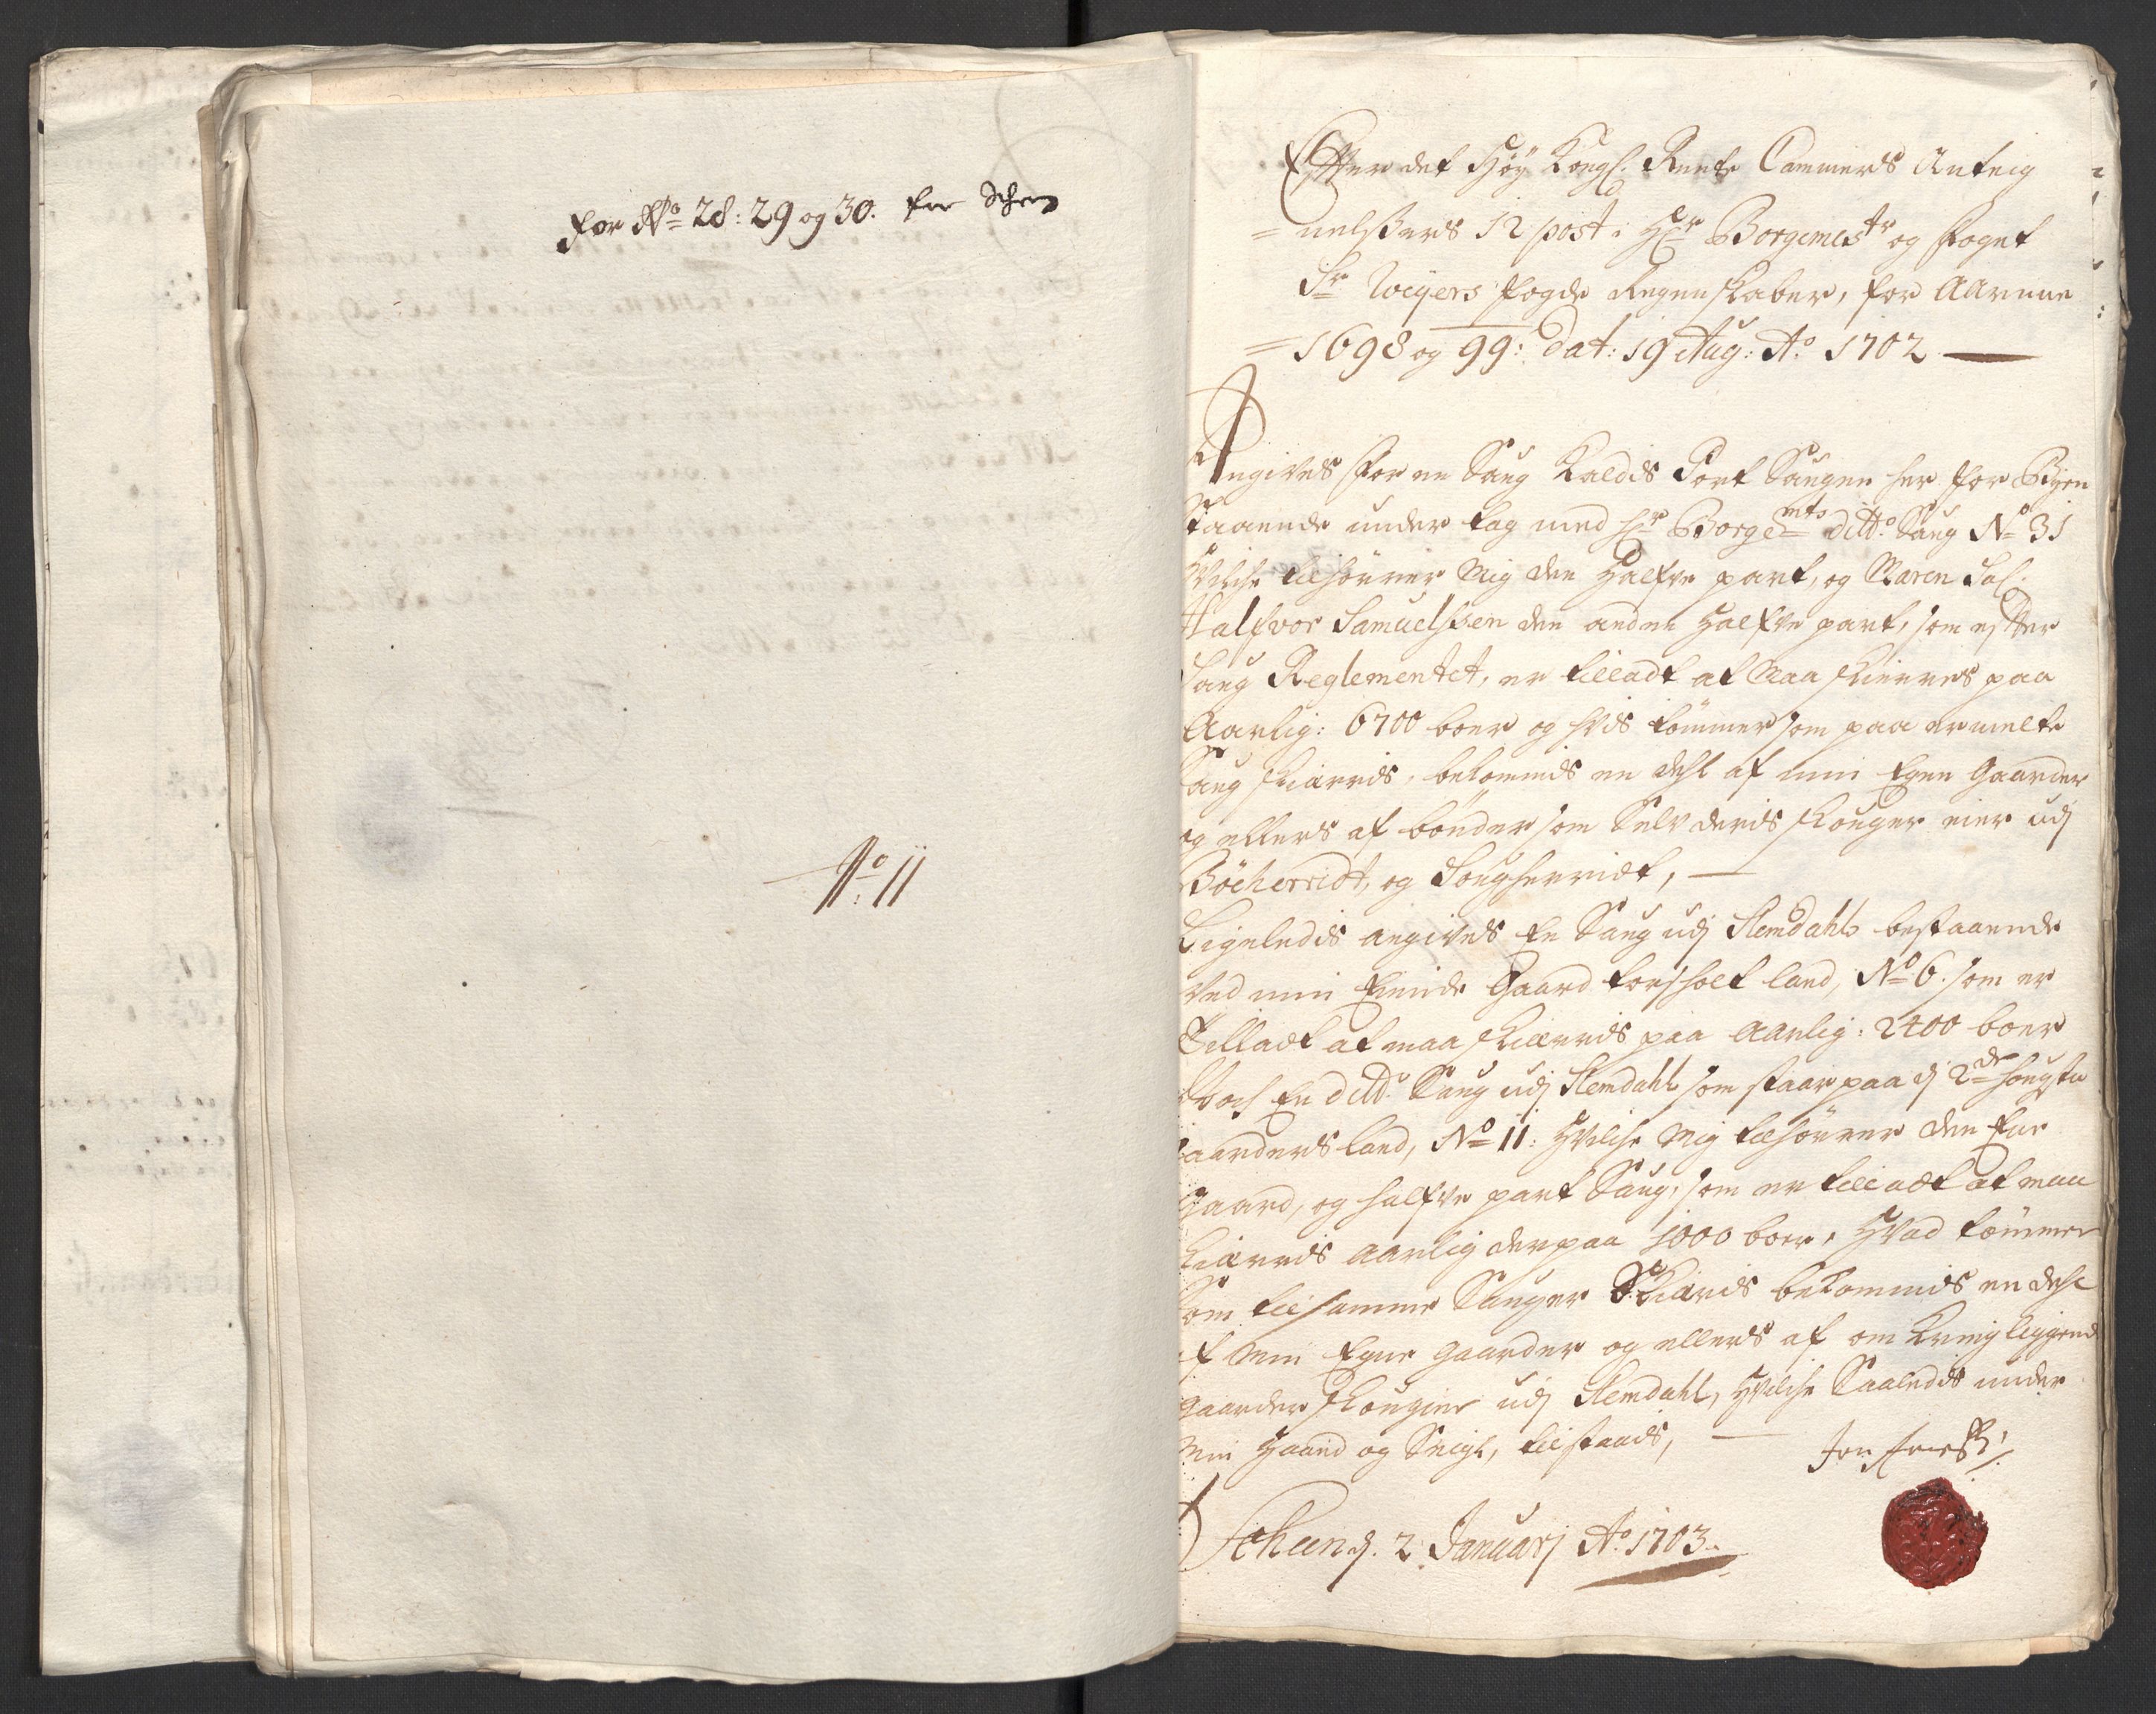 for No 28: 29 og 30. for Scheen
No: 11
Efter det Høy Kongl. Rente Cammers Anteig
= nelßers 12 post i Hr Borgemestr og foget
Sr Weyers fogde Regenskaber, for Aarene
= 1698 og 99: dat: 19 Aug: Ao 1702
Angives for en Saug Kaldis Port Saugen her for Byen
staaende under tag med Hr Borgemts ditto Saug No 31
Hvilche tilhörrer Mig den Halfve part, og Maren Sal.
Halfvor Samuelßen den anden Halfve part, som efter
Saug Reglementet, er tilladt at Maa skierres paa
Aarlig: 6700 boer og hvis tömmer som paa ermelte
Saug skierris, bekommis en dehl af min Egen Gaarder
og ellers af bönder som Selv deris skouger eier udj
Böcherridt, og Sougherridt,
Ligeledis angives En Saug udj Slemdahls bestaaende
ved min Eiende Gaard forsholt land, No 6. som er
Tilladt at maa skierris paa Aarlig: 2400 boer
Noch En ditto Saug udj Slemdahl som staar paa dj 2de
gaarders land, No 11: Hvilche Mig tilhörrer den Ene
Gaard, og halfve part Saug, som er tilladt at maa
skierris Aarlig derpaa 1000 boer, Hvad tömmer
som til samme Sauger Skieris bekommis en dehl
af Min Egne gaarder og ellers af om kring liggende
gaarder skougier udj Slemdahl, Hvilche Saaledis under
Min Haand og Seigl, tilstaais,
Scheen d. 2 Januarj Ao 1703.